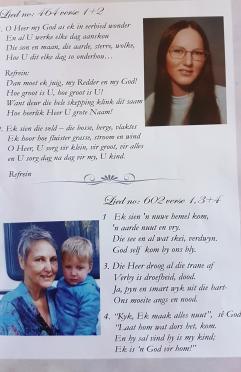 Lied no: 464 verse 1+2
. O Heer my God as ek in eerbied wonder
En al U werke elke dag aanskou
Die son en maan, die aarde, sterre, wolke,
Hoe U dit elke dag so onderhou...
Refrein:
Dan moet ek juig, my Redder en my God!
Hoe groot is U, hoe groot is U!
Want deur die hele skepping klink dit saam
Hoe heerlik Heer U grote Naam!
2. Ek sien die veld – die bosse, berge, vlaktes
Ek hoor hoe fluister grasse, stroom en wind
O Heer, U sorg vir klein, vir groot, vir alles
en U sorg dag na dag vir my, U kind.
Refrein
Lied no: 602 verse 1,3+4
1 Ek sien 'n nuwe hemel kom,
'n aarde nuut en vry.
Die see en al wat skei, verdwyn.
God self kom by ons bly.
3. Die Heer droog al die trane af
Verby is droefheid, dood.
Ja, pyn en smart wyk uit die hart-
Ons moeite angs en nood.
4. "Kyk, Ek maak alles nuut", sê God
"Laat hom wat dors het, kom.
En hy sal vind hy is my kind;
Ek is 'n God vir hom!"